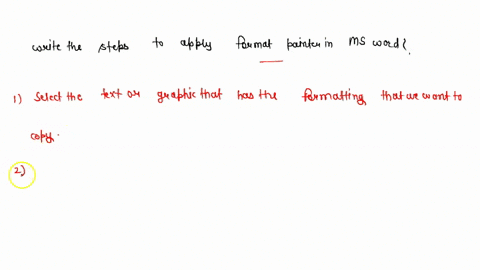 write the steps to apply format painter in MS word?
1) Select the text or graphic that has the formatting that we want to
copy.
2)